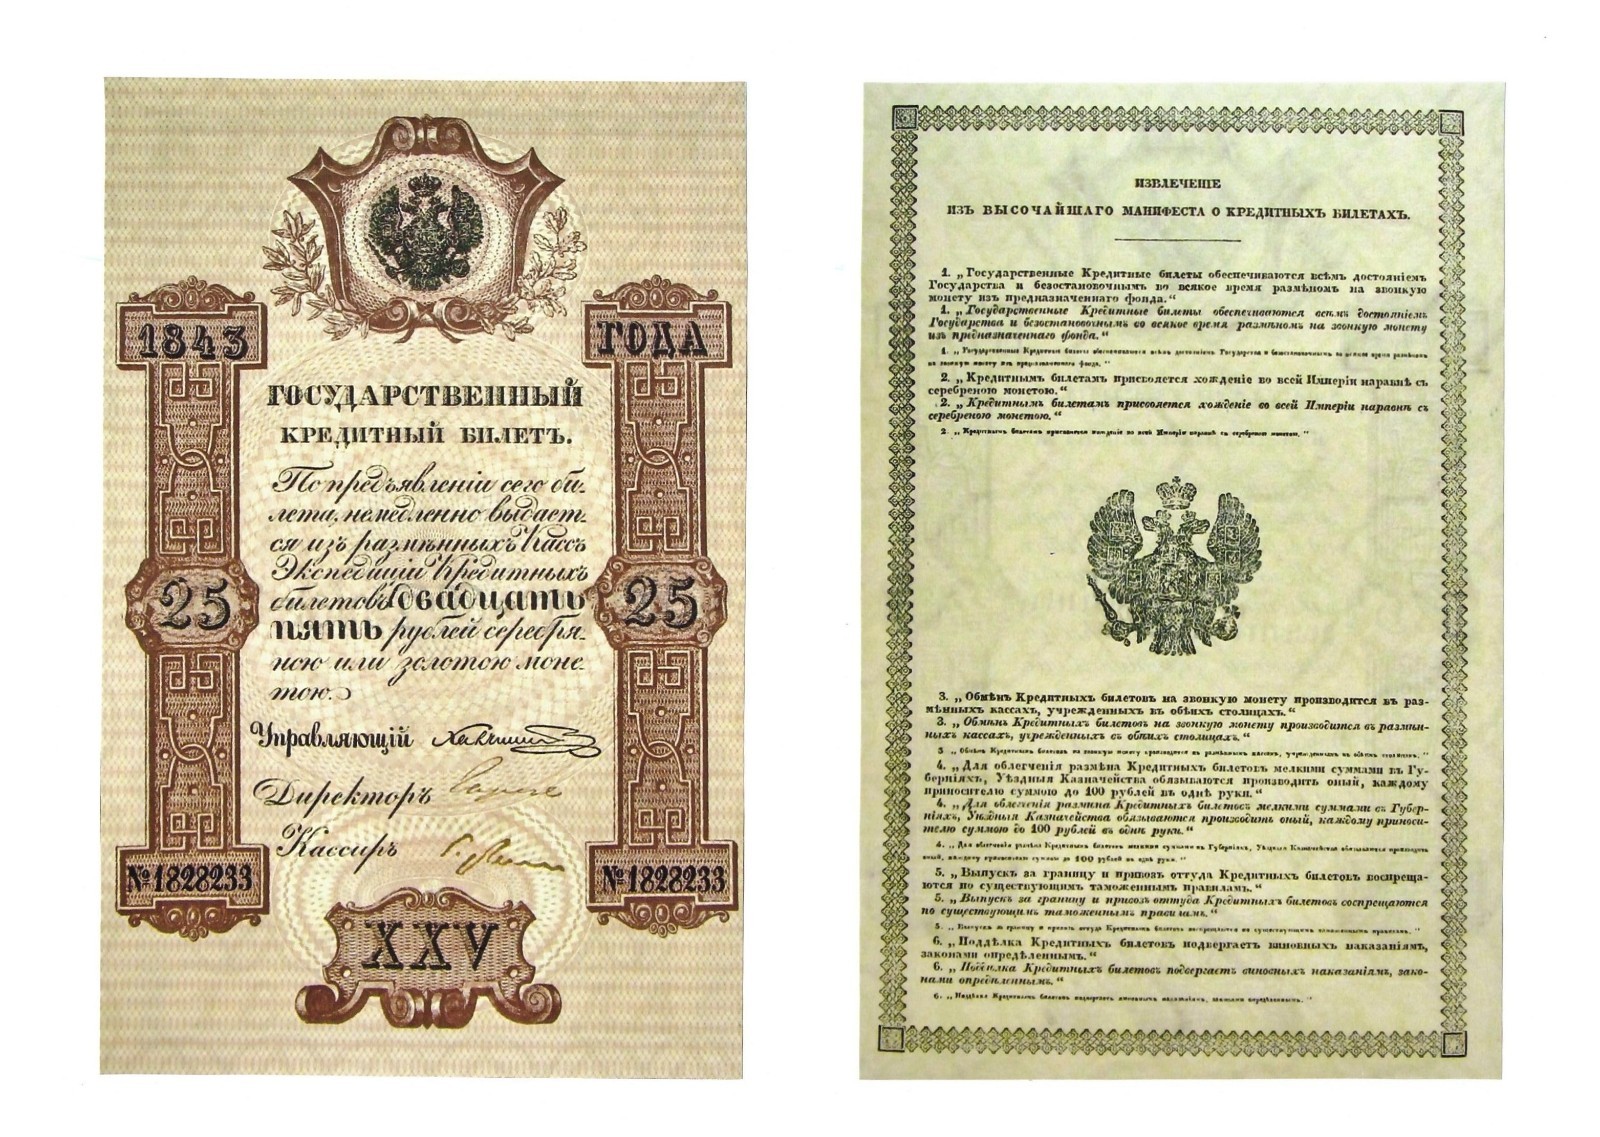 1843 ГОДА
ГОСУДАРСТВЕННЫЙ
КРЕДИТНЫЙ БИЛЕТЪ.
По предъявленіи сего би-
лета, немедленно выдает-
ся изъ размѣнныхъ Кассъ
Экспедиціи Кредитныхъ
билетовъ двадцать
пять рублей серебря-
ною или золотою моне-
тою.
25 25
Управляющій
Директоръ
Кассиръ
№1828233 №1828233
XXV
ИЗВЛЕЧЕНІЕ
ИЗЪ ВЫСОЧАЙШАГО МАНИФЕСТА О КРЕДИТНЫХЪ БИЛЕТАХЪ.
1. „Государственные Кредитные билеты обеспечиваются всѣмъ достояніемъ
Государства и безостановочнымъ во всякое время размѣномъ на звонкую
монету изъ предназначеннаго фонда.“
1. „Государственные Кредитные билеты обеспечиваются всѣмъ достояніемъ
Государства и безостановочнымъ во всякое время размѣномъ на звонкую монету
изъ предназначеннаго фонда.“
1. „Государственные Кредитные билеты обеспечиваются всѣмъ достояніемъ Государства и безостановочнымъ во всякое время размѣномъ
на звонкую монету изъ предназначеннаго фонда. “
2. „Кредитнымъ билетамъ присвояется хожденіе во всей Имперіи наравнѣ съ
серебреною монетою.“
2. „Кредитнымъ билетамъ присвояется хожденіе во всей Имперіи наравнѣ съ
серебреною монетою.“
2. „Кредитнымъ билетамъ присвояется хожденіе во всей Имперіи наравнѣ съ серебреною монетою. “
3. „Обмѣнъ Кредитныхъ билетовъ на звонкую монету производится въ раз-
мѣнныхъ кассахъ, учрежденныхъ въ обѣихъ столицахъ.“
3. „Обмѣнъ Кредитныхъ билетовъ на звонкую монету производится въ размѣн-
ныхъ кассахъ, учрежденныхъ въ обѣихъ столицахъ.“
3 „Обмѣнъ Кредитныхъ билетовъ на звонкую монету производится въ размѣнныхъ кассахъ, учрежденныхъ въ обѣихъ столицахъ. “
4. „Для облегченія размѣна Кредитныхъ билетовъ мелкими суммами въ Гу-
берніяхъ, Уѣздныя Казначейства обязываются производить оный, каждому
приносителю суммою до 100 рублей въ однѣ руки.“
4. „Для облегченія размѣна Кредитныхъ билетовъ мелкими суммами въ Губер-
ніяхъ, Уѣздныя Казначейства обязываются производить оный, каждому приноси-
телю суммою до 100 рублей въ однѣ руки.“
4. „Для облегченія размѣна Кредитныхъ билетовъ мелкими суммами въ Губерніяхъ, Уѣздныя Казначейства обязываются производить
оный, каждому приносителю суммою до 100 рублей въ однѣ руки. “
5. „Выпускъ за границу и привозъ оттуда Кредитныхъ билетовъ воспреща-
ются по существующимъ таможеннымъ правиламъ.“
5. „Выпускъ за границу и привозъ оттуда Кредитныхъ билетовъ воспрещаются
по существующимъ таможеннымъ правиламъ.“
5. „Выпускъ за границу и привозъ оттуда Кредитныхъ билетовъ воспрещаются по существующимъ таможеннымъ правиламъ. “
6. „Поддѣлка Кредитныхъ билетовъ подвергаетъ виновныхъ наказаніямъ,
законами опредѣленнымъ.“
6. „Поддѣлка Кредитныхъ билетовъ подвергаетъ виновныхъ наказаніямъ, зако-
нами опредѣленнымъ.“
6. „Поддѣлка Кредитныхъ билетовъ подвергаетъ виновныхъ наказаніямъ, законами опредѣленнымъ. “